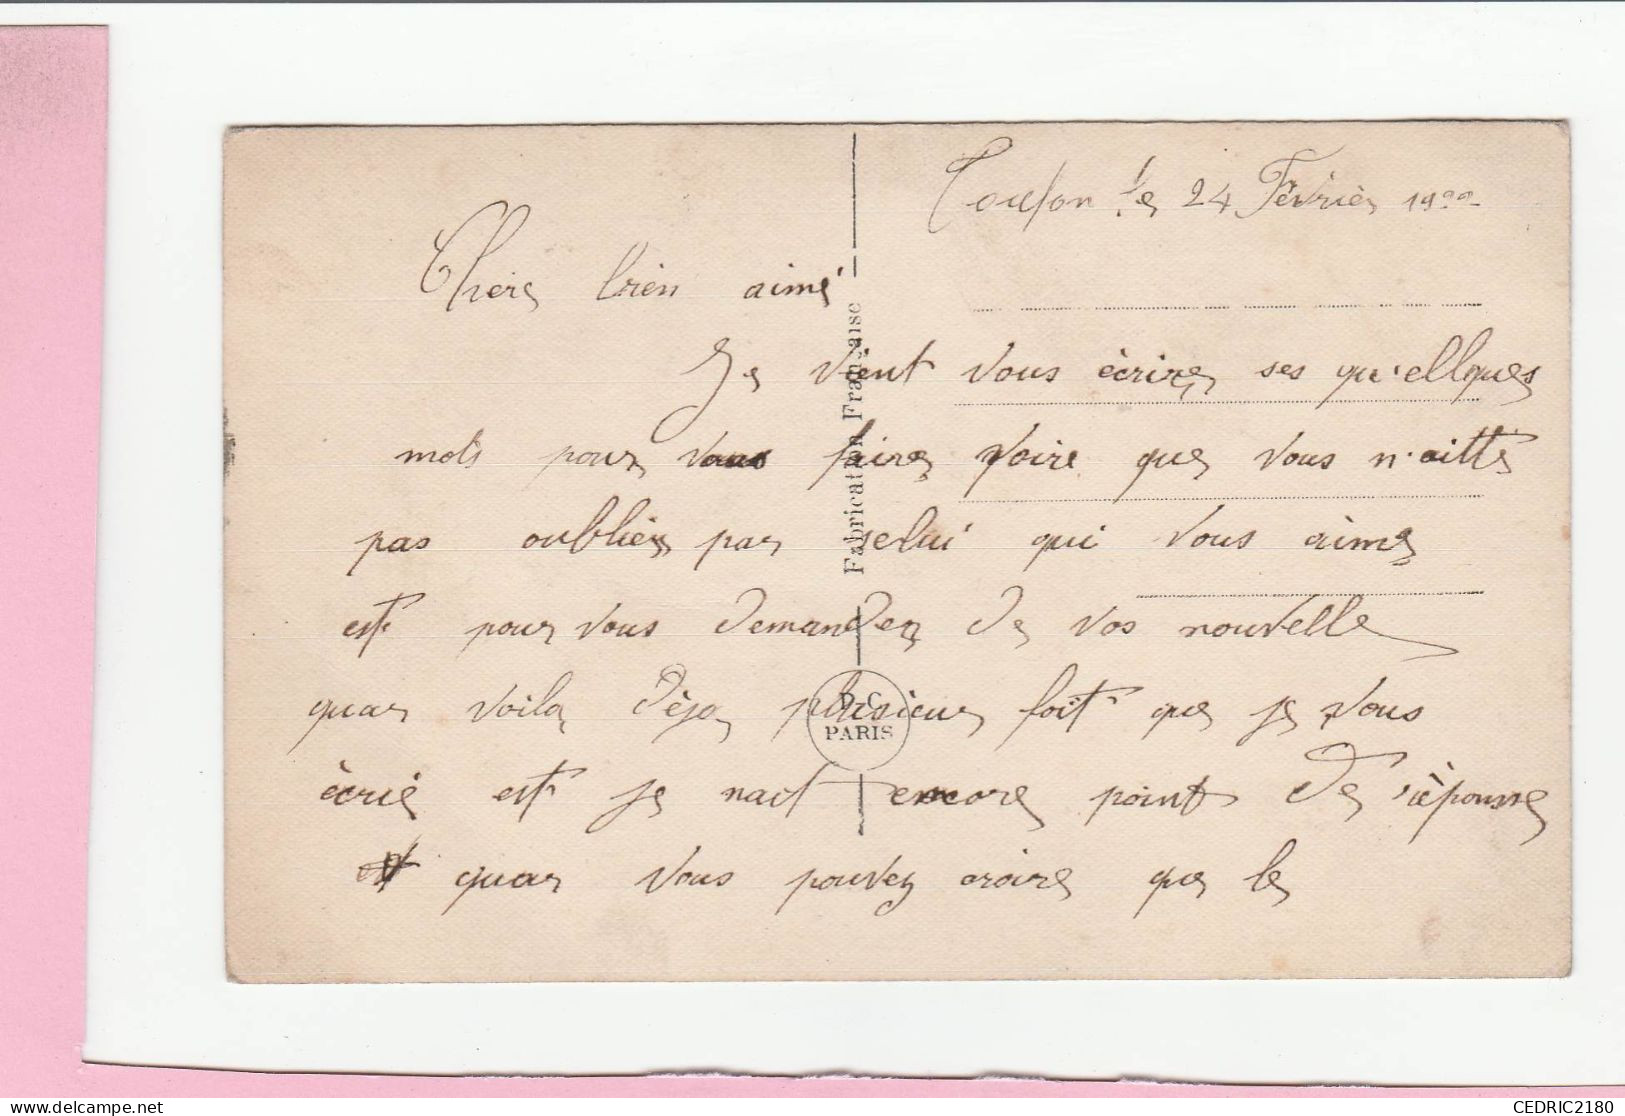 Toulon le 24 Février 1922
Chere bien aimé
Je vient vous écrire ses qu'ellques
mots pour vous faire voire que vous n'aitte
pas oublier par selui qui vous aime
est pour vous demander de vos nouvelle
quar voila déja plusieur foit que je vous
écrie est je nait encore point de réponse
quar vous pouvez croire que le
Fabrication Française
D.C.
PARIS
CEDRIC2180